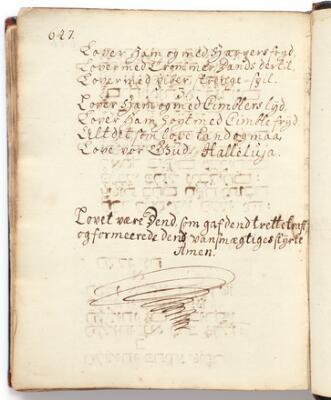 647.
Lover Ham og med Harpers fryd,
Lover med Trommer, Dands dertil
Lover med Piber, Strenge-spil.
Lover Ham og med Cimblers lyd,
Lover Ham høyt med Cimble fryd,
Alt det som love kand og maa
Love vor Gud. Halleluja.
Lovet være Dend, som gaf dend trette kraft
og formeerede dens vansmægtiges styrke
Amen.